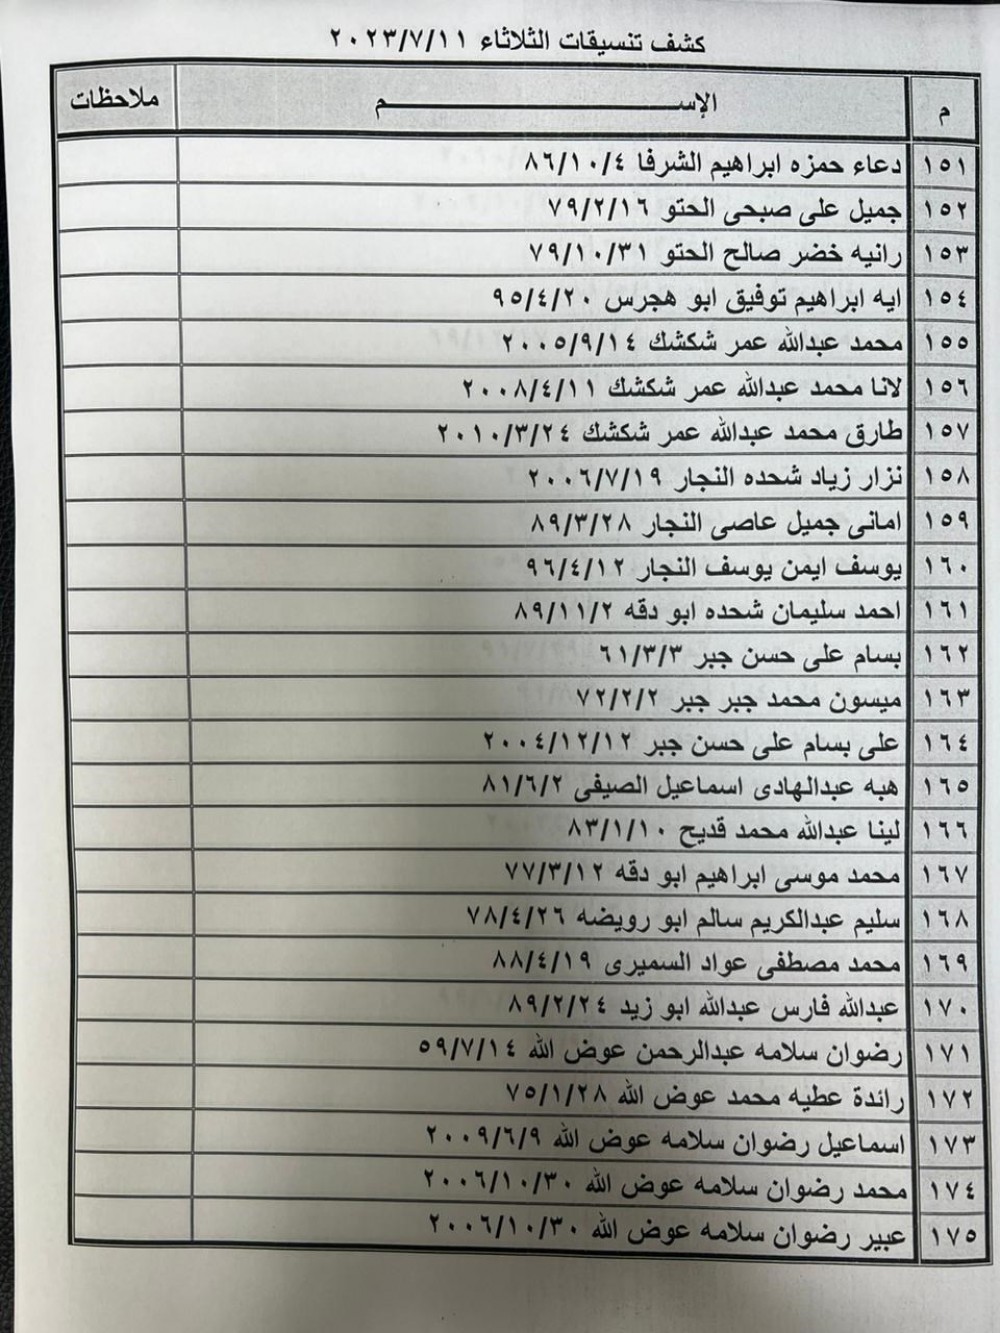 كشف تنسيقات الثلاثاء ٢٠٢٣/٧/١١
م الإســـــم ملاحظات
١٥١ دعاء حمزه ابراهيم الشرفا ٨٦/١٠/٤
١٥٢ جميل على صبحى الحتو ٧٩/٢/١٦
١٥٣ رانيه خضر صالح الحتو ٧٩/١٠/٣١
١٥٤ ايه ابراهيم توفيق ابو هجرس ٩٥/٤/٢٠
١٥٥ محمد عبدالله عمر شكشك ٢٠٠٥/٩/١٤
١٥٦ لانا محمد عبدالله عمر شكشك ٢٠٠٨/٤/١١
١٥٧ طارق محمد عبدالله عمر شكشك ٢٠١٠/٣/٢٤
١٥٨ نزار زياد شحده النجار ٢٠٠٦/٧/١٩
١٥٩ امانى جميل عاصى النجار ٨٩/٣/٢٨
١٦٠ يوسف ايمن يوسف النجار ٩٦/٤/١٢
١٦١ احمد سليمان شحده ابو دقه ٨٩/١١/٢
١٦٢ بسام على حسن جبر ٦١/٣/٣
١٦٣ ميسون محمد جبر جبر ٧٢/٢/٢
١٦٤ على بسام على حسن جبر ٢٠٠٤/١٢/١٢
١٦٥ هبه عبدالهادى اسماعيل الصيفى ٨١/٦/٢
١٦٦ لينا عبدالله محمد قديح ٨٣/١/١٠
١٦٧ محمد موسى ابراهيم ابو دقه ٧٧/٣/١٢
١٦٨ سليم عبدالكريم سالم ابو رويضه ٧٨/٤/٢٦
١٦٩ محمد مصطفى عواد السميرى ٨٨/٤/١٩
١٧٠ عبدالله فارس عبدالله ابو زيد ٨٩/٢/٢٤
١٧١ رضوان سلامه عبدالرحمن عوض الله ٥٩/٧/١٤
١٧٢ رائدة عطيه محمد عوض الله ٧٥/١/٢٨
١٧٣ اسماعيل رضوان سلامه عوض الله ٢٠٠٩/٦/٩
١٧٤ محمد رضوان سلامه عوض الله ٢٠٠٦/١٠/٣٠
١٧٥ عبير رضوان سلامه عوض الله ٢٠٠٦/١٠/٣٠